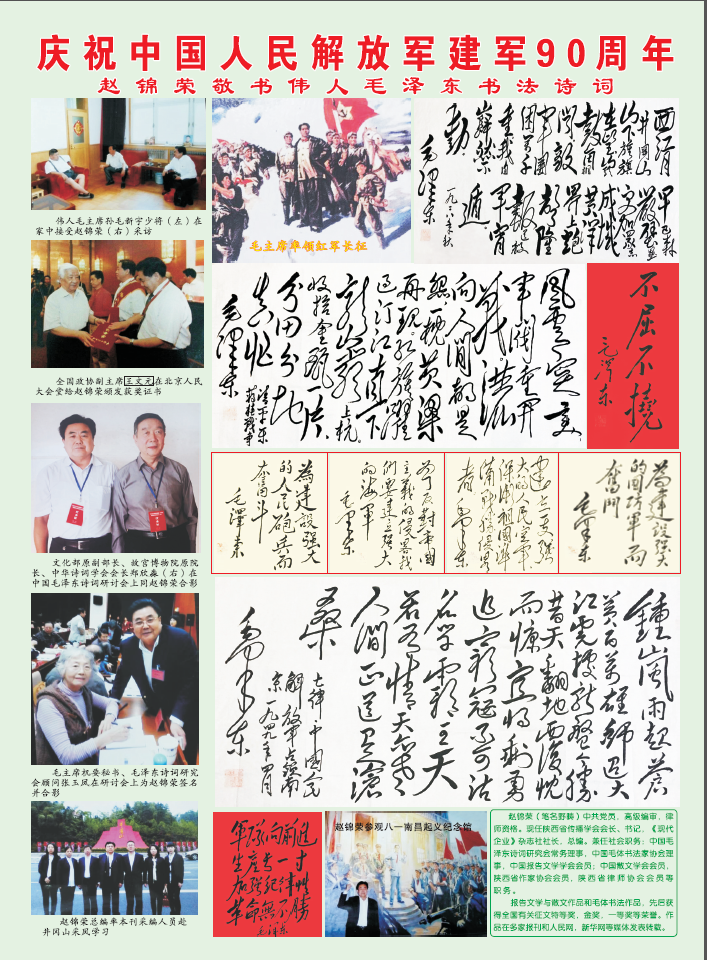 庆祝中国人民解放军建军90周年
赵锦荣敬书伟人毛泽东书法诗词
伟人毛主席孙毛新宇少将(左)在
家中接受赵锦荣(右)采访
全国政协副主席王文元在北京人民
大会堂给赵锦荣颁发获奖证书
文化部原副部长、故宫博物院原院
长、中华诗词学会会长郑欣淼(右)在
中国毛泽东诗词研讨会上同赵锦荣合影
毛主席机要秘书、毛泽东诗词研究
会顾问张玉凤在研讨会上为赵锦荣签名
并合影
赵锦荣总编率本刊采编人员赴
井冈山采风学习
毛主席率领红军长征
西江月
井冈山
山下旌旗
在望山
头鼓角相
闻敌
军围
困万千
重我自
岿然不
动
早已森
严壁垒
更加众志
成城
黄洋
界上炮
声隆
报道敌
军宵
遁
毛泽东
一九二八年秋
风云突变
军阀重开
战洒
向人间都是
怨一枕黄粱
再现红旗跃
过汀江直下
龙岩上杭
收拾金瓯一片
分田分地
真忙
清平乐
蒋桂战争
毛泽东
不屈不挠
毛泽东
为建设强大
的人民炮兵而
奋斗
毛泽东
为了反对帝国
主义的侵略我
们要建立强大
的海军
毛泽东
毛泽东
为建设强大
的国防军而
奋斗
毛泽东
钟山风雨起苍
黄百万雄师过大
江虎踞龙盘今胜
昔天翻地覆慨
而慷宜将剩勇
追穷寇不可沽
名学霸王天
若有情天亦老
人间正道是沧
桑
七律中国人民
解放军占领南
京一九四九年四月
毛泽东
军队向前进
生产长一寸
加强纪律性
革命无不胜
毛泽东
赵锦荣参观八一南昌起义纪念馆
赵锦荣(笔名野畴)中共党员,高级编审,律
师资格。现任陕西省传播学会会长、书记,《现代
企业》杂志社社长、总编。兼任社会职务:中国毛
泽东诗词研究会常务理事,中国毛体书法家协会理
事,中国报告文学学会会员;中国散文学会会员,
陕西省作家协会会员,陕西省律师协会会员等
职务。
报告文学与散文作品和毛体书法作品,先后获
得全国有关征文特等奖,金奖,一等奖等荣誉。作
品在多家报刊和人民网,新华网等媒体发表转载。